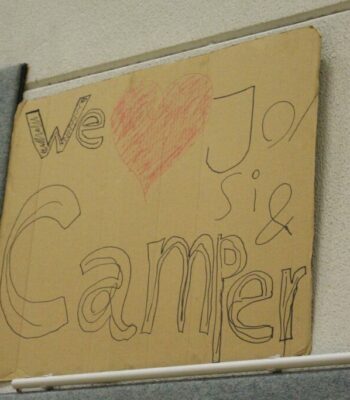 We ❤ Jo/
si &
Camper